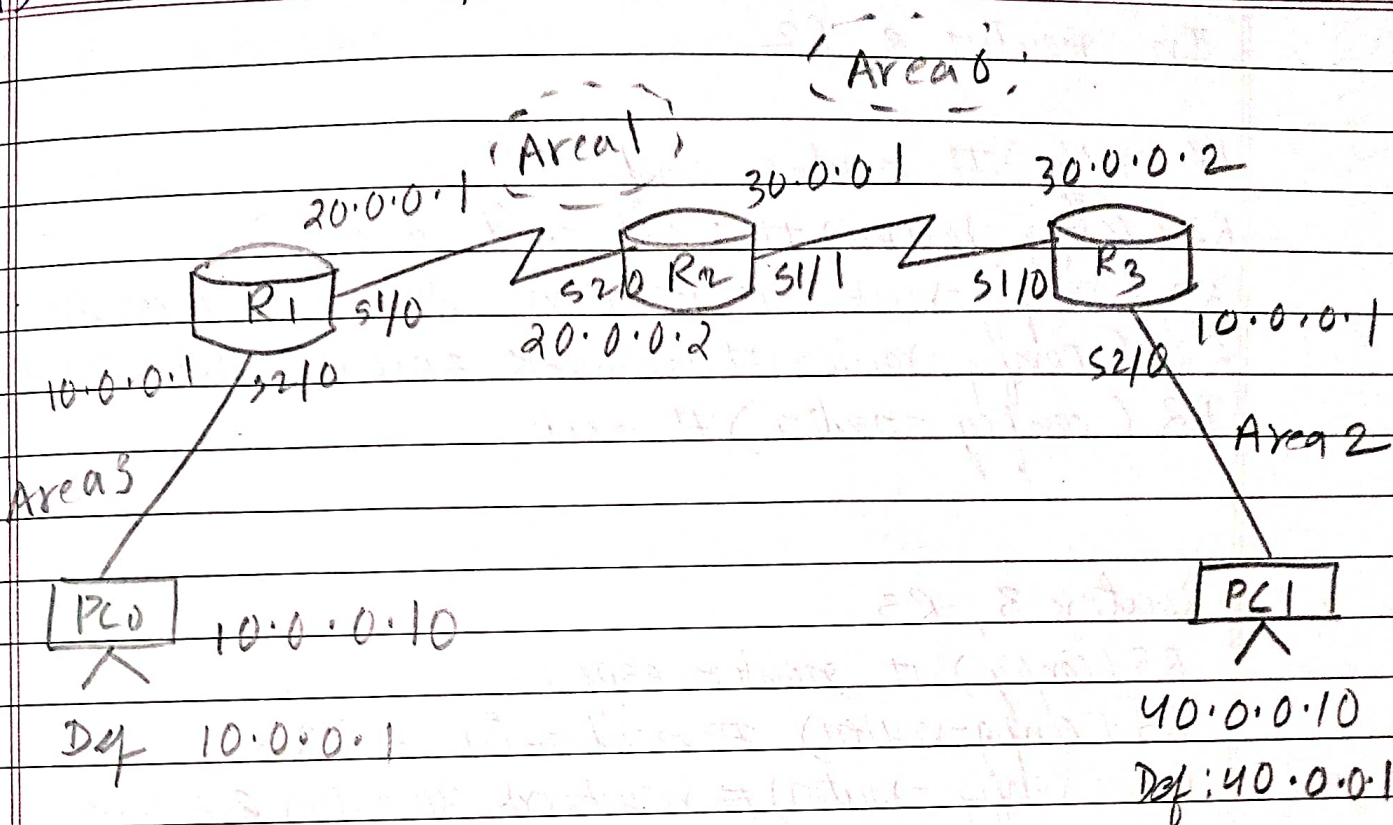 Area 0
Area 1
20.0.0.1
30.0.0.1
30.0.0.2
R1
S1/0
S2/0
R2
S1/1
S1/0
R3
20.0.0.2
10.0.0.1
S2/0
10.0.0.1
S2/0
Area 3
Area 2
PC0
10.0.0.10
PC1
Def 10.0.0.1
40.0.0.10
Def: 40.0.0.1